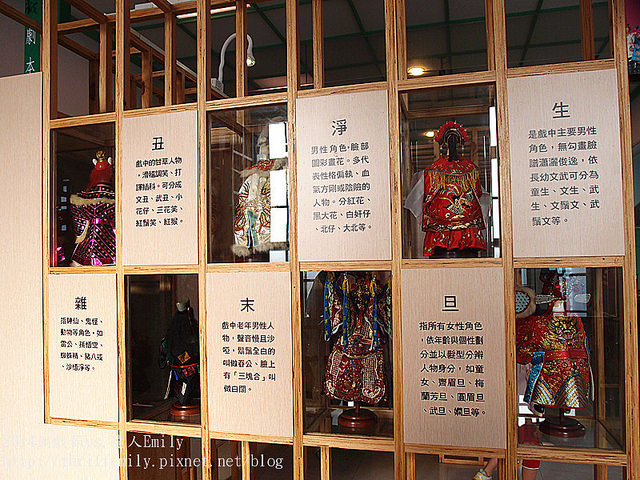 劇本
丑
戲中的甘草人物
，滑稽調笑、打
諢插科。可分成
文丑、武丑、小
花仔、三花笑、
紅鬚笑、紅猴。
淨
男性角色，臉部
圖彩畫花。多代
表性格偏執、血
氣方剛或陰險的
人物。分紅花、
黑大花、白奸仔
、北仔、大北等。
生
是戲中主要男性
角色，無勾畫臉
譜瀟灑俊逸，依
長幼文武可分為
童生、文生、武
生、文鬚文、武
鬚文等。
雜
指神仙、鬼怪、
動物等角色，如
雷公、孫悟空、
蜘蛛精、豬八戒
、沙悟淨等。
末
戲中老年男性人
物，聲音慢且沙
啞，鬍鬚全白的
叫做春公、臉上
有「三塊合」叫
做白闊。
旦
指所有女性角色
，依年齡與個性劃
分並以髮型分辨
人物身分，如童
女、齊眉旦、梅
蘭芳旦、圓眉旦
、武旦、嫺旦等。
人Emily
.pixnet.net/blog